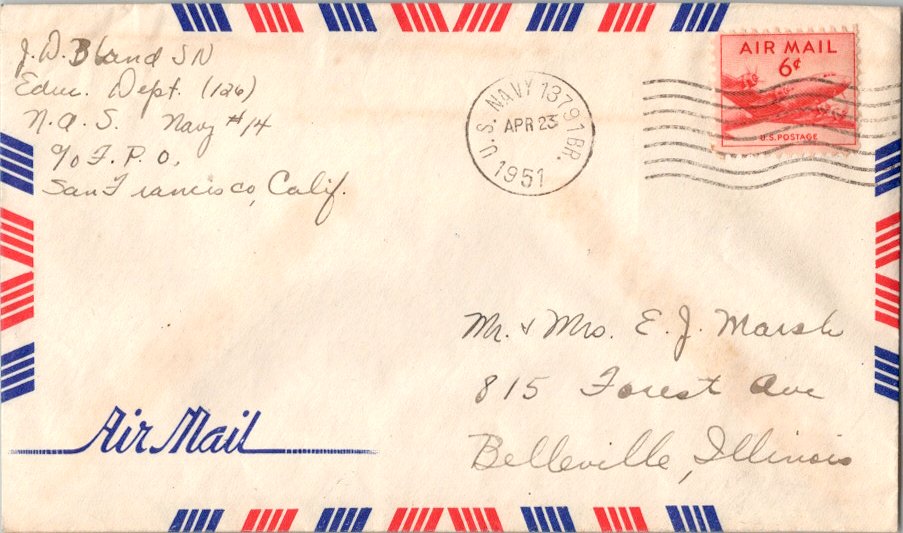 J. D. Bland SN
Educ. Dept. (126)
N.A.S. Navy #14
c/o F.P.O.
San Francisco, Calif.
U.S. NAVY 13791 BR.
APR 23
1951
AIR MAIL
6¢
U.S. POSTAGE
Mr. & Mrs. E. J. Marsh
815 Forest Ave
Belleville, Illinois
Air Mail